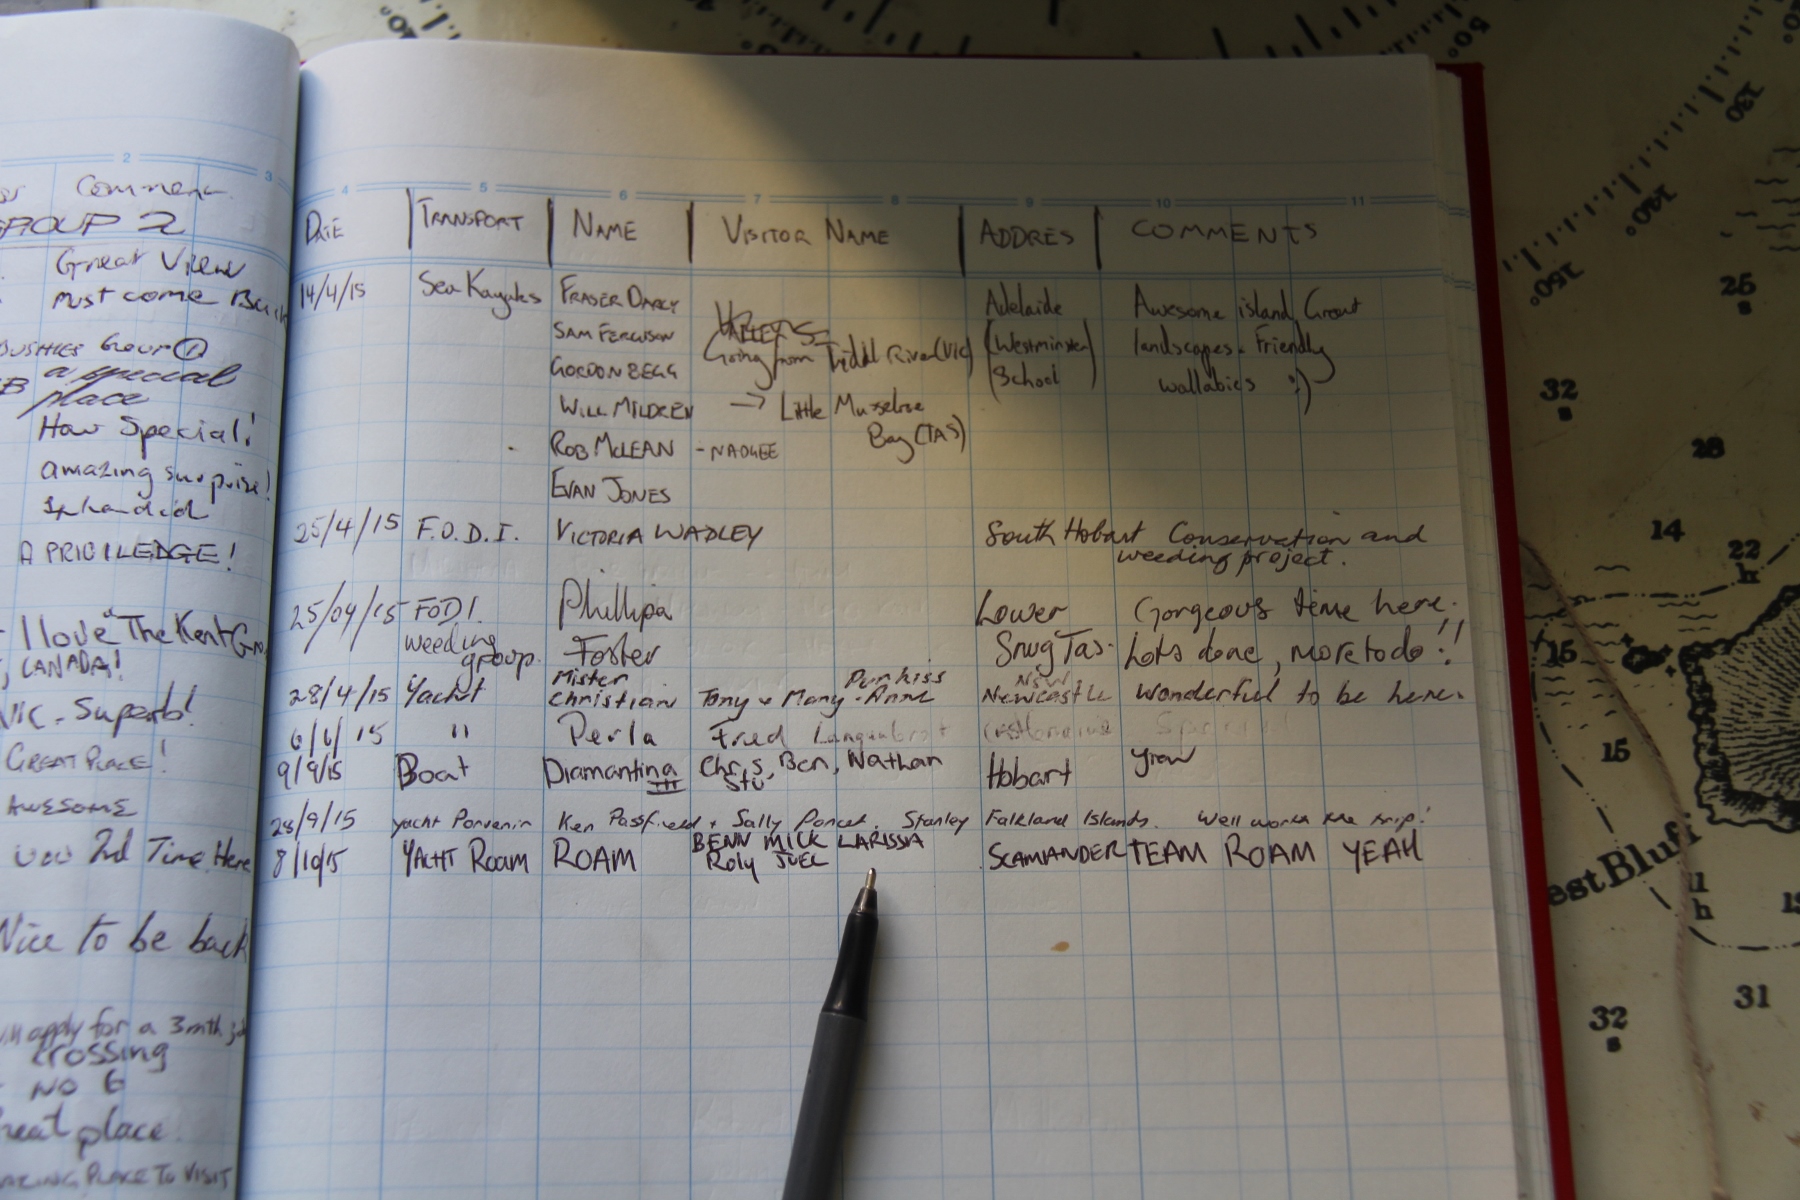 2 3
Comment
GROUP 2
Great View
must come Back
a special
place
How Special!
amazing surprise!
Splendid
A PRIVILEDGE!
I love "The Kent
CANADA!
VIC - Superb!
GREAT PLACE!
AWESOME
2nd Time Here
Nice to be back
apply for a 3mth
crossing
NO 6
place
PLACE TO VISIT
4 5 6 7 8 9 10 11
DATE TRANSPORT NAME VISITOR NAME ADDRES COMMENTS
14/4/15 Sea Kayaks FRASER DARCY Adelaide Awesome island Great
SAM FERGUSON Going from Tidal River (VIC) (Westminster landscapes. Friendly
GORDON BEGG School) wallabies :)
WILL MILDREN → Little Musselroe
Bay (TAS)
ROB McLEAN - NADGEE
EVAN JONES
25/4/15 F.O.D.I. VICTORIA WADLEY South Hobart Conservation and
weeding project.
25/04/15 FODI Phillipa Lower Gorgeous time here.
weeding Foster Snug Tas. Lots done, more to do!!
group.
Mister Purkiss NSW
28/4/15 Yacht Christian Tony & Mary-Anne Newcastle Wonderful to be here.
6/6/15 " Perla Fred
9/9/15 Boat Diamantina III Chris, Ben, Nathan Hobart
Stu
28/9/15 yacht Porvenir Ken Passfield + Sally Poncet. Stanley Falkland Islands. Well worth the trip!
BENN MICK LARISSA
8/10/15 YACHT ROAM ROAM Roly JOEL SCAMANDER TEAM ROAM YEAH
130
140°
150°
25
s
32
s
28
14
22
h
15
15
estBluff
11
h
31
32
s